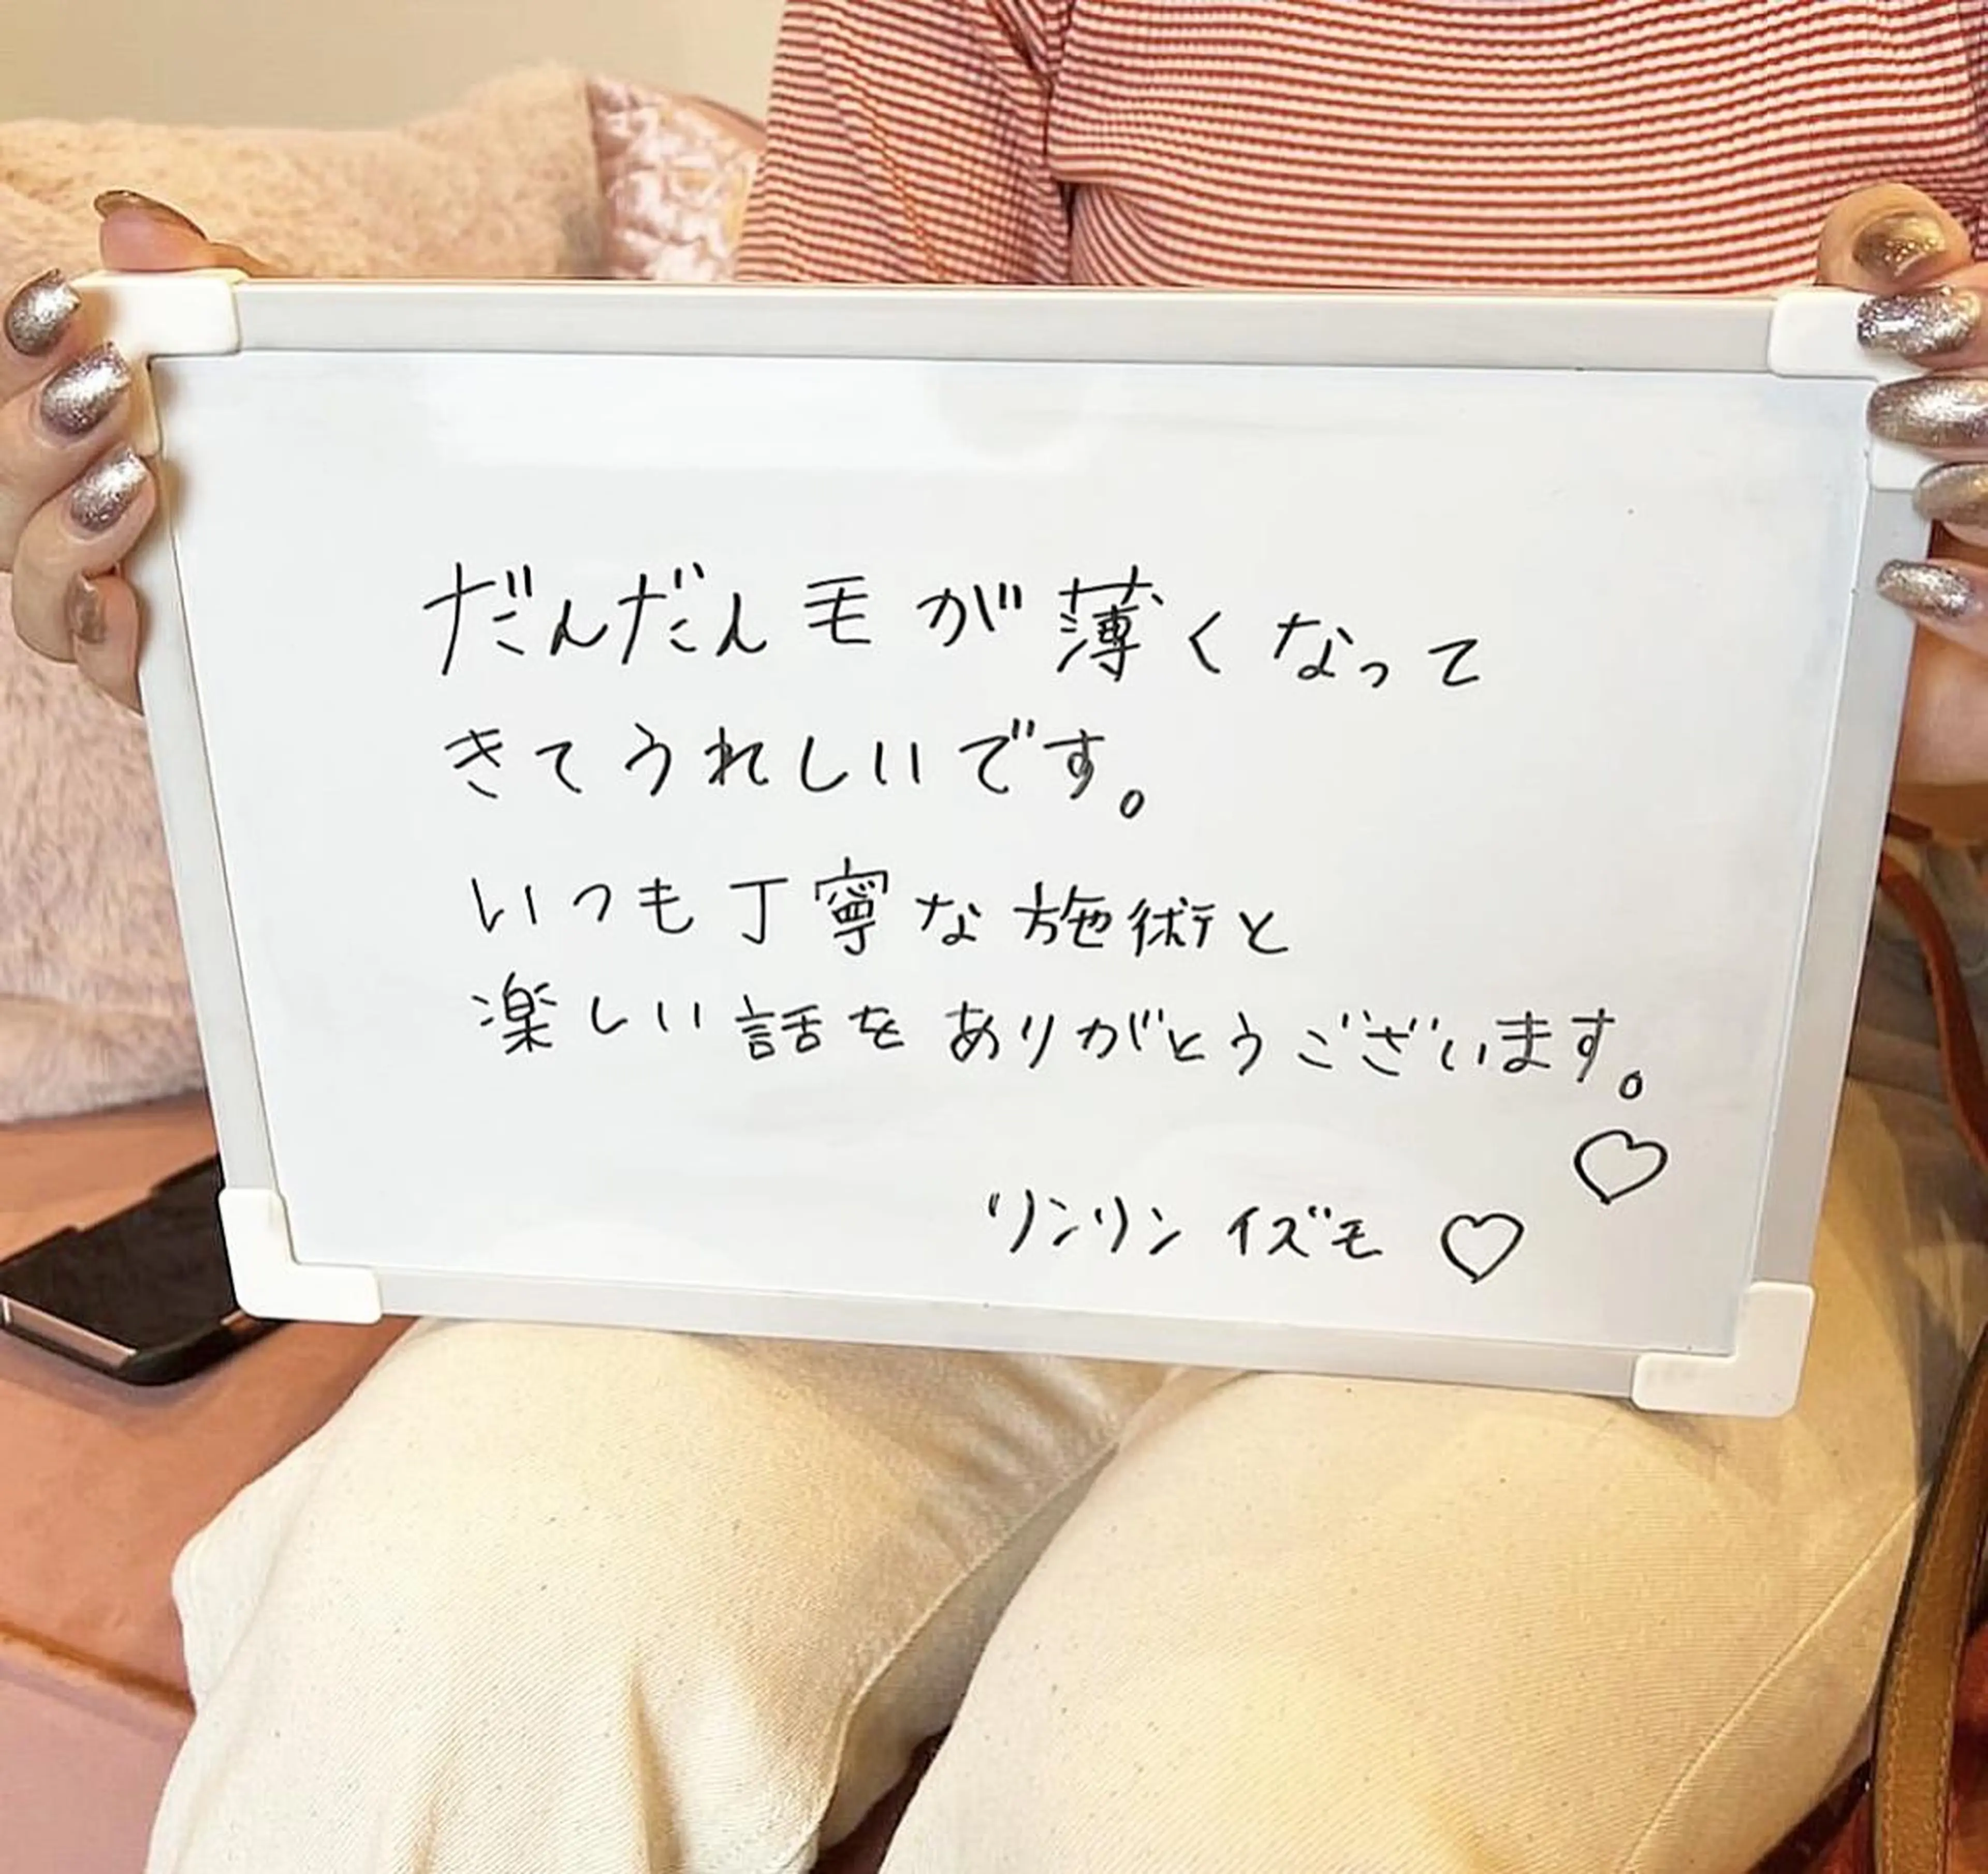 だんだん毛が薄くなって
きてうれしいです。
いつも丁寧な施術と
楽しい話をありがとうございます。
♡
リンリンイズモ ♡